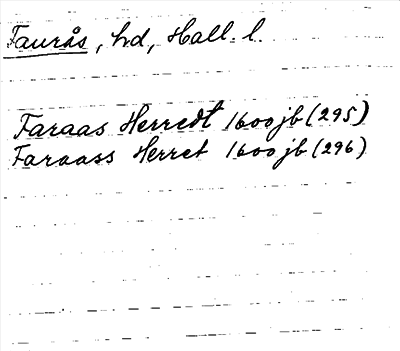 Faurås, hd, Hall. l.
Faraas Herredt 1600 jb (295)
Faraass Herret 1600 jb (296)